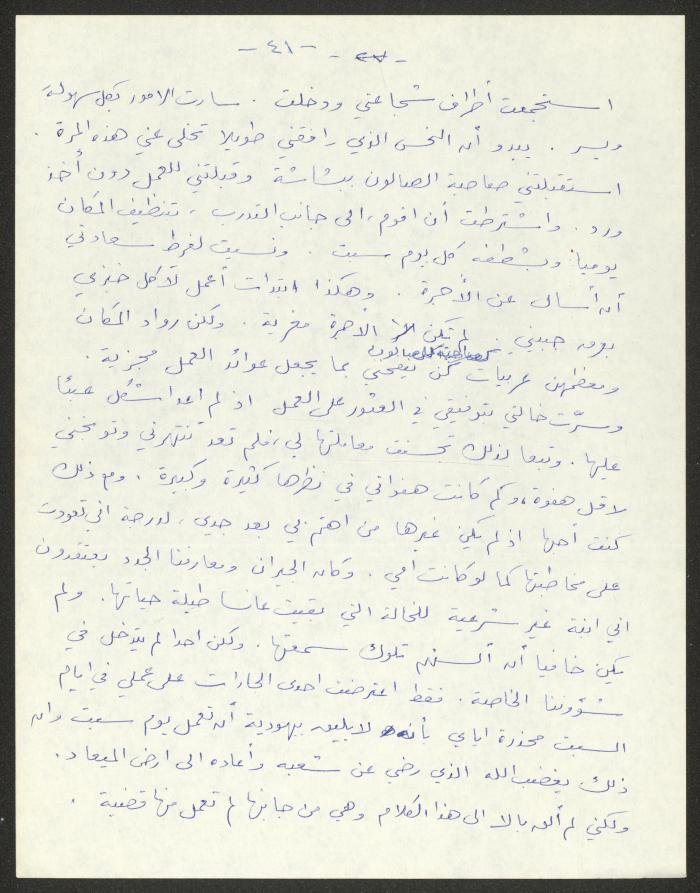 - ٤١ -
استجمعت أطراف شجاعتي ودخلت . سارت الامور بكل سهولة
ويسر . يبدو أن النحس الذي رافقني طويلا تخلى عني هذه المرة .
استقبلتني صاحبة الصالون ببشاشة وقبلتني للعمل دون أخذ
ورد . واشترطت أن اقوم ، الى جانب التدرب ، تنظيف المكان
يوميا وبشطفه كل يوم سبت . ونسيت لفرط سعادتي
أن أسال عن الأجرة . وهكذا ابتدات أعمل لآكل خبزي
بعرق جبيني . لم تكن الأجرة مغرية . ولكن رواد المكان
صاحبة الصالون
ومعظمهن عربيات كن بما يجعل عوائد العمل مجزية .
وسرّت خالتي بتوفيقي في العثور على العمل اذ لم اعد اشكل عبئا
عليها . وتبعا لذلك تحسنت معاملتها لي ، فلم تعد تنتهرني وتوبخني
لاقل هفوة ، وكم كانت هفواتي في نظرها كثيرة وكبيرة . ومع ذلك
كنت أحبها اذ لم يكن غيرها من اهتم بي بعد جدي ، لدرجة اني تعودت
على مخاطبتها كما لو كانت امي . وكان الجيران ومعارفنا الجدد يعتقدون
اني ابنة غير شرعية للخالة التي بقيت عانسا طيلة حياتها . ولم
يكن خافيا أن ألسنتهم تلوك سمعتها . ولكن احدا لم يتدخل في
شؤوننا الخاصة . فقط اعترضت احدى الجارات على عملي في ايام
السبت محذرة اياي بأنه لا يليق بيهودية أن تعمل يوم سبت وان
ذلك يغضب الله الذي رضي عن شعبه وأعاده الى ارض الميعاد .
ولكني لم ألق بالا الى هذا الكلام وهي من جانبها لم تعمل منها قضية .